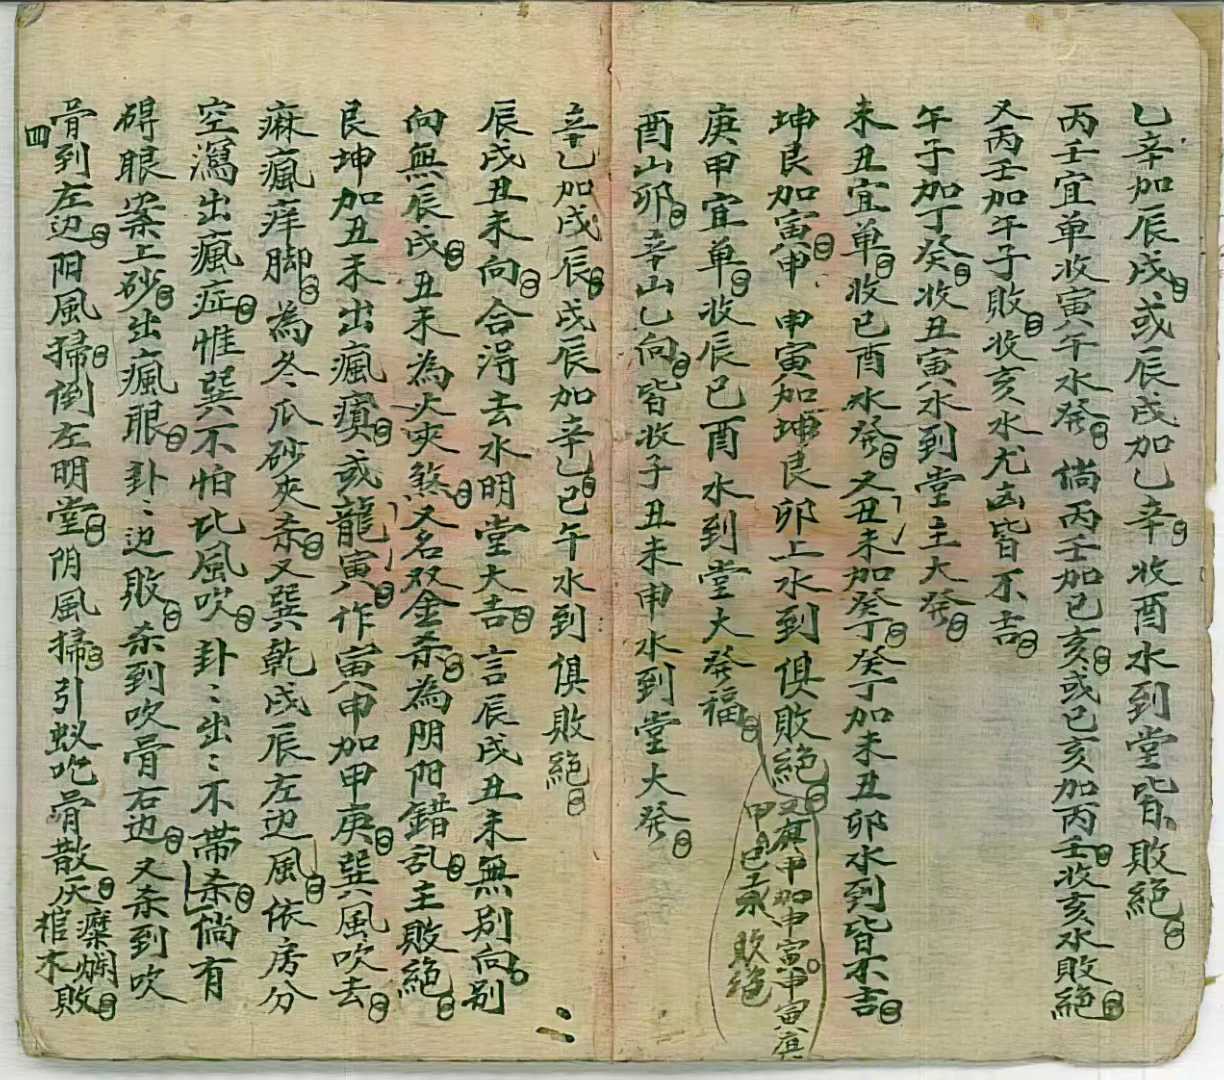 乙辛加辰戌或辰戌加乙辛收酉水到堂皆敗絕
丙壬宜单收寅午水發倘丙壬加巳亥或巳亥加丙壬收亥水敗絕
又丙壬加午子敗收亥水尤凶皆不吉
午子加丁癸收丑寅水到堂主大發
未丑宜单收巳酉水發又丑未加癸丁癸丁加未丑卯水到皆不吉
坤艮加寅申申寅加坤艮卯上水到俱敗絕
又庚甲加申寅申寅庚
甲巳水敗絕
庚甲宜单收辰巳酉水到堂大發福
酉山卯辛山乙向皆收子丑未申水到堂大發
辛乙加戌辰戌辰加辛乙巳午水到俱敗絕
辰戌丑未向合得去水明堂大吉言辰戌丑未無别向别
向無辰戌丑未為大夾煞又名双金杀為阴阳錯乱主敗絕
艮坤加丑未出瘋癀或龍寅作寅申加甲庚巽風吹去
痳瘋痒脚為冬瓜砂夾杀又巽乾戌辰左边風依房分
空瀉出瘋症惟巽不怕比風吹卦〻出〻不帶杀倘有
碍眼案上砂出瘋眼卦〻边敗杀到吹骨右边又杀到吹
骨到左边阳風掃倒左明堂阴風掃引蚁吃骨散灰
糜爛
棺木敗
四